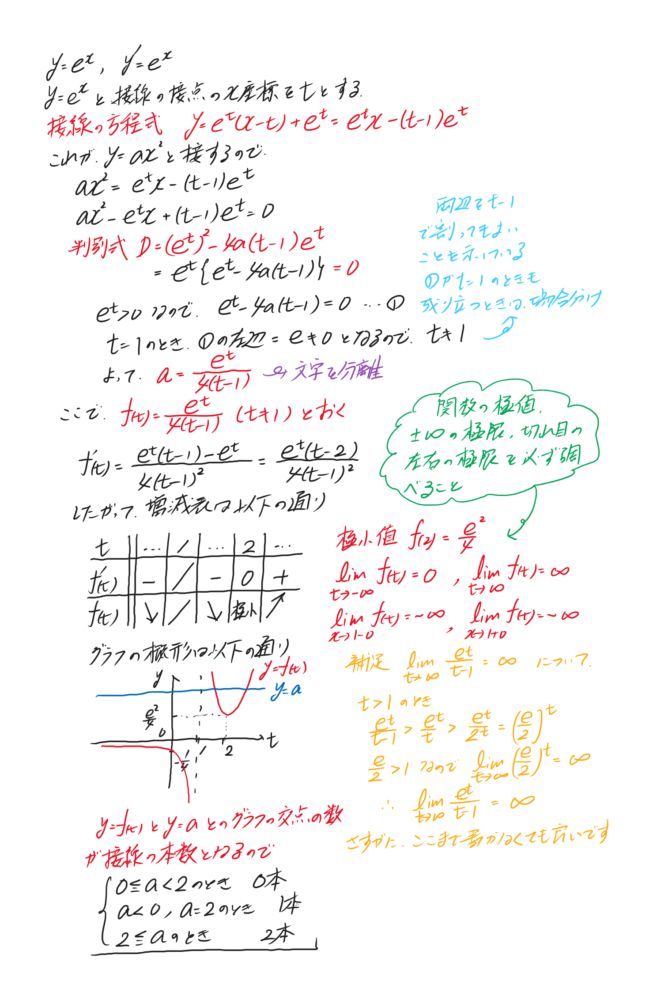 y=e^x, y'=e^x
y=e^xと接線の接点のx座標をtとする.
接線の方程式 y=e^t(x-t)+e^t=e^t x-(t-1)e^t
これが、y=ax²と接するので.
ax²=e^t x-(t-1)e^t
ax²-e^t x+(t-1)e^t=0
判別式 D=(e^t)²-4a(t-1)e^t
=e^t{e^t-4a(t-1)}=0
e^t>0なので. e^t-4a(t-1)=0 …①
t=1のとき. ①の左辺=e≠0となるので. t≠1
両辺をt-1
で割ってもよい
ことも示している
①がt=1のときも
成り立つときは、場合分け
よって. a=e^t/4(t-1) → 文字を分離
ここで. f(t)=e^t/4(t-1) (t≠1)とおく
f'(t)=e^t(t-1)-e^t/4(t-1)²=e^t(t-2)/4(t-1)²
したがって、増減表は以下の通り
関数の極値.
±∞の極限、切れ目の
左右の極限を必ず調
べること
t … 1 … 2 …
f'(t) - / - 0 +
f(t) ↘ / ↘ 極小 ↗
極小値 f(2)=e²/4
lim t→-∞ f(t)=0, lim t→∞ f(t)=∞
lim x→1-0 f(t)=-∞, lim x→1+0 f(t)=-∞
グラフの概形は以下の通り
y y=f(t)
y=a
e²/4
0
-1/4 1 2 t
補足 lim t→∞ e^t/t-1=∞ について.
t>1のとき
e^t/t-1>e^t/t>e^t/2^t=(e/2)^t
e/2>1なので lim t→∞ (e/2)^t=∞
∴ lim t→∞ e^t/t-1=∞
さすがに、ここまで書かなくても良いです
y=f(t)とy=aとのグラフの交点の数
が接線の本数となるので
0≦a<2のとき 0本
a<0, a=2のとき 1本
2≦aのとき 2本